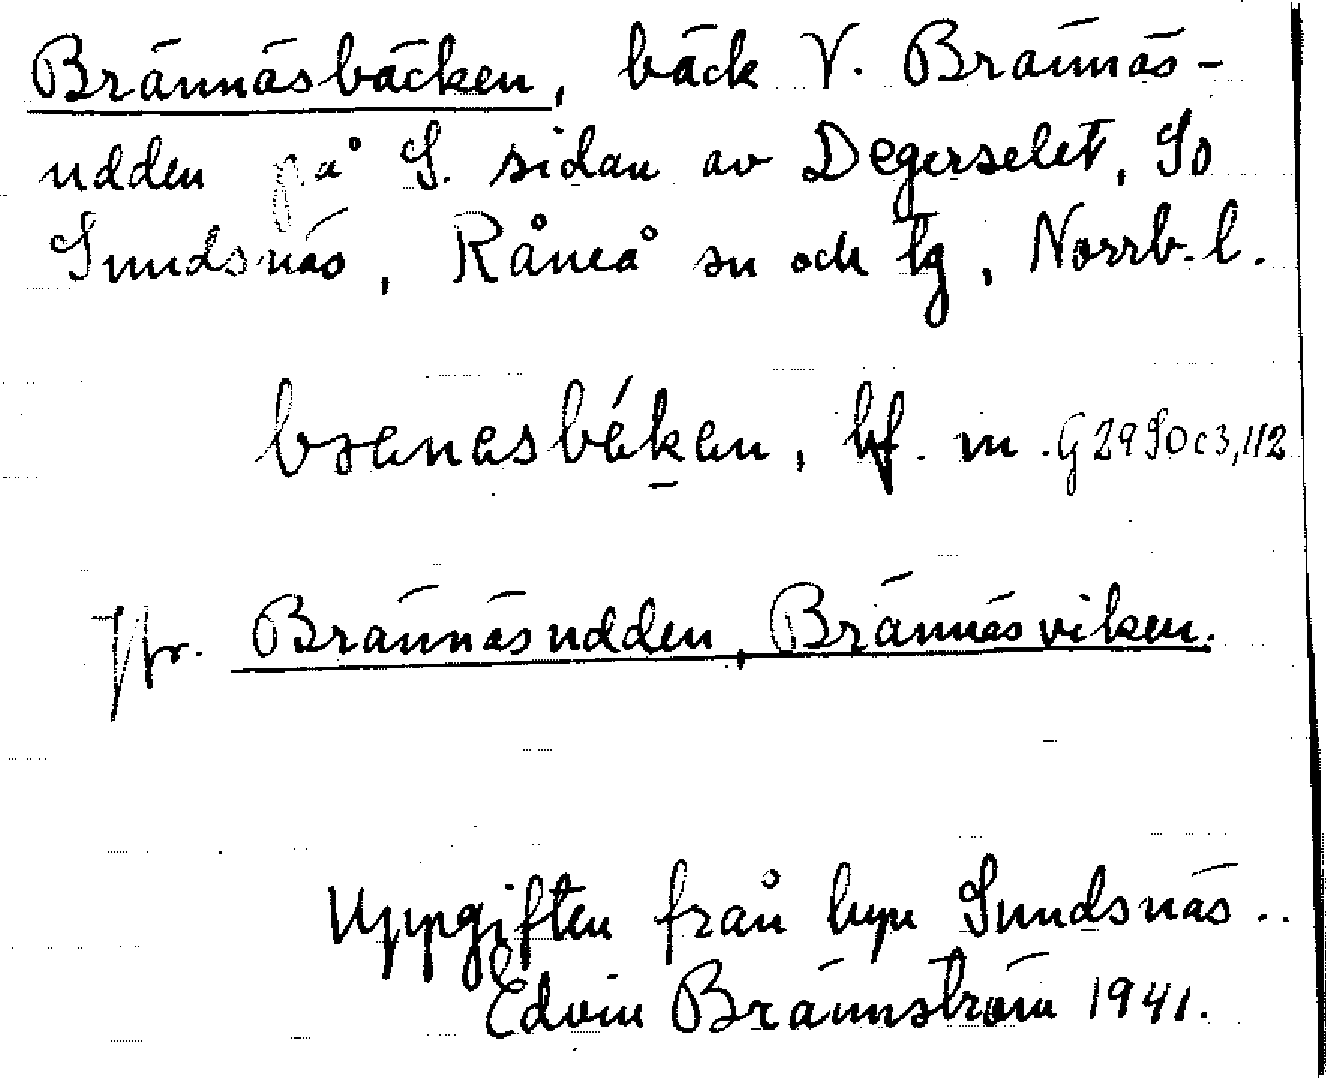 Brännäsbäcken, bäck V. Brännäs-
udden på S. sidan av Degerselet, So
Sundsnäs, Råneå sn och tg, Norrb. l.
brenesbéken, bf. m. G 29 So c3, 112
Jfr. Brännäsudden, Brännäsviken.
Uppgiften från byn Sundsnäs..
Edvin Brännström 1941.